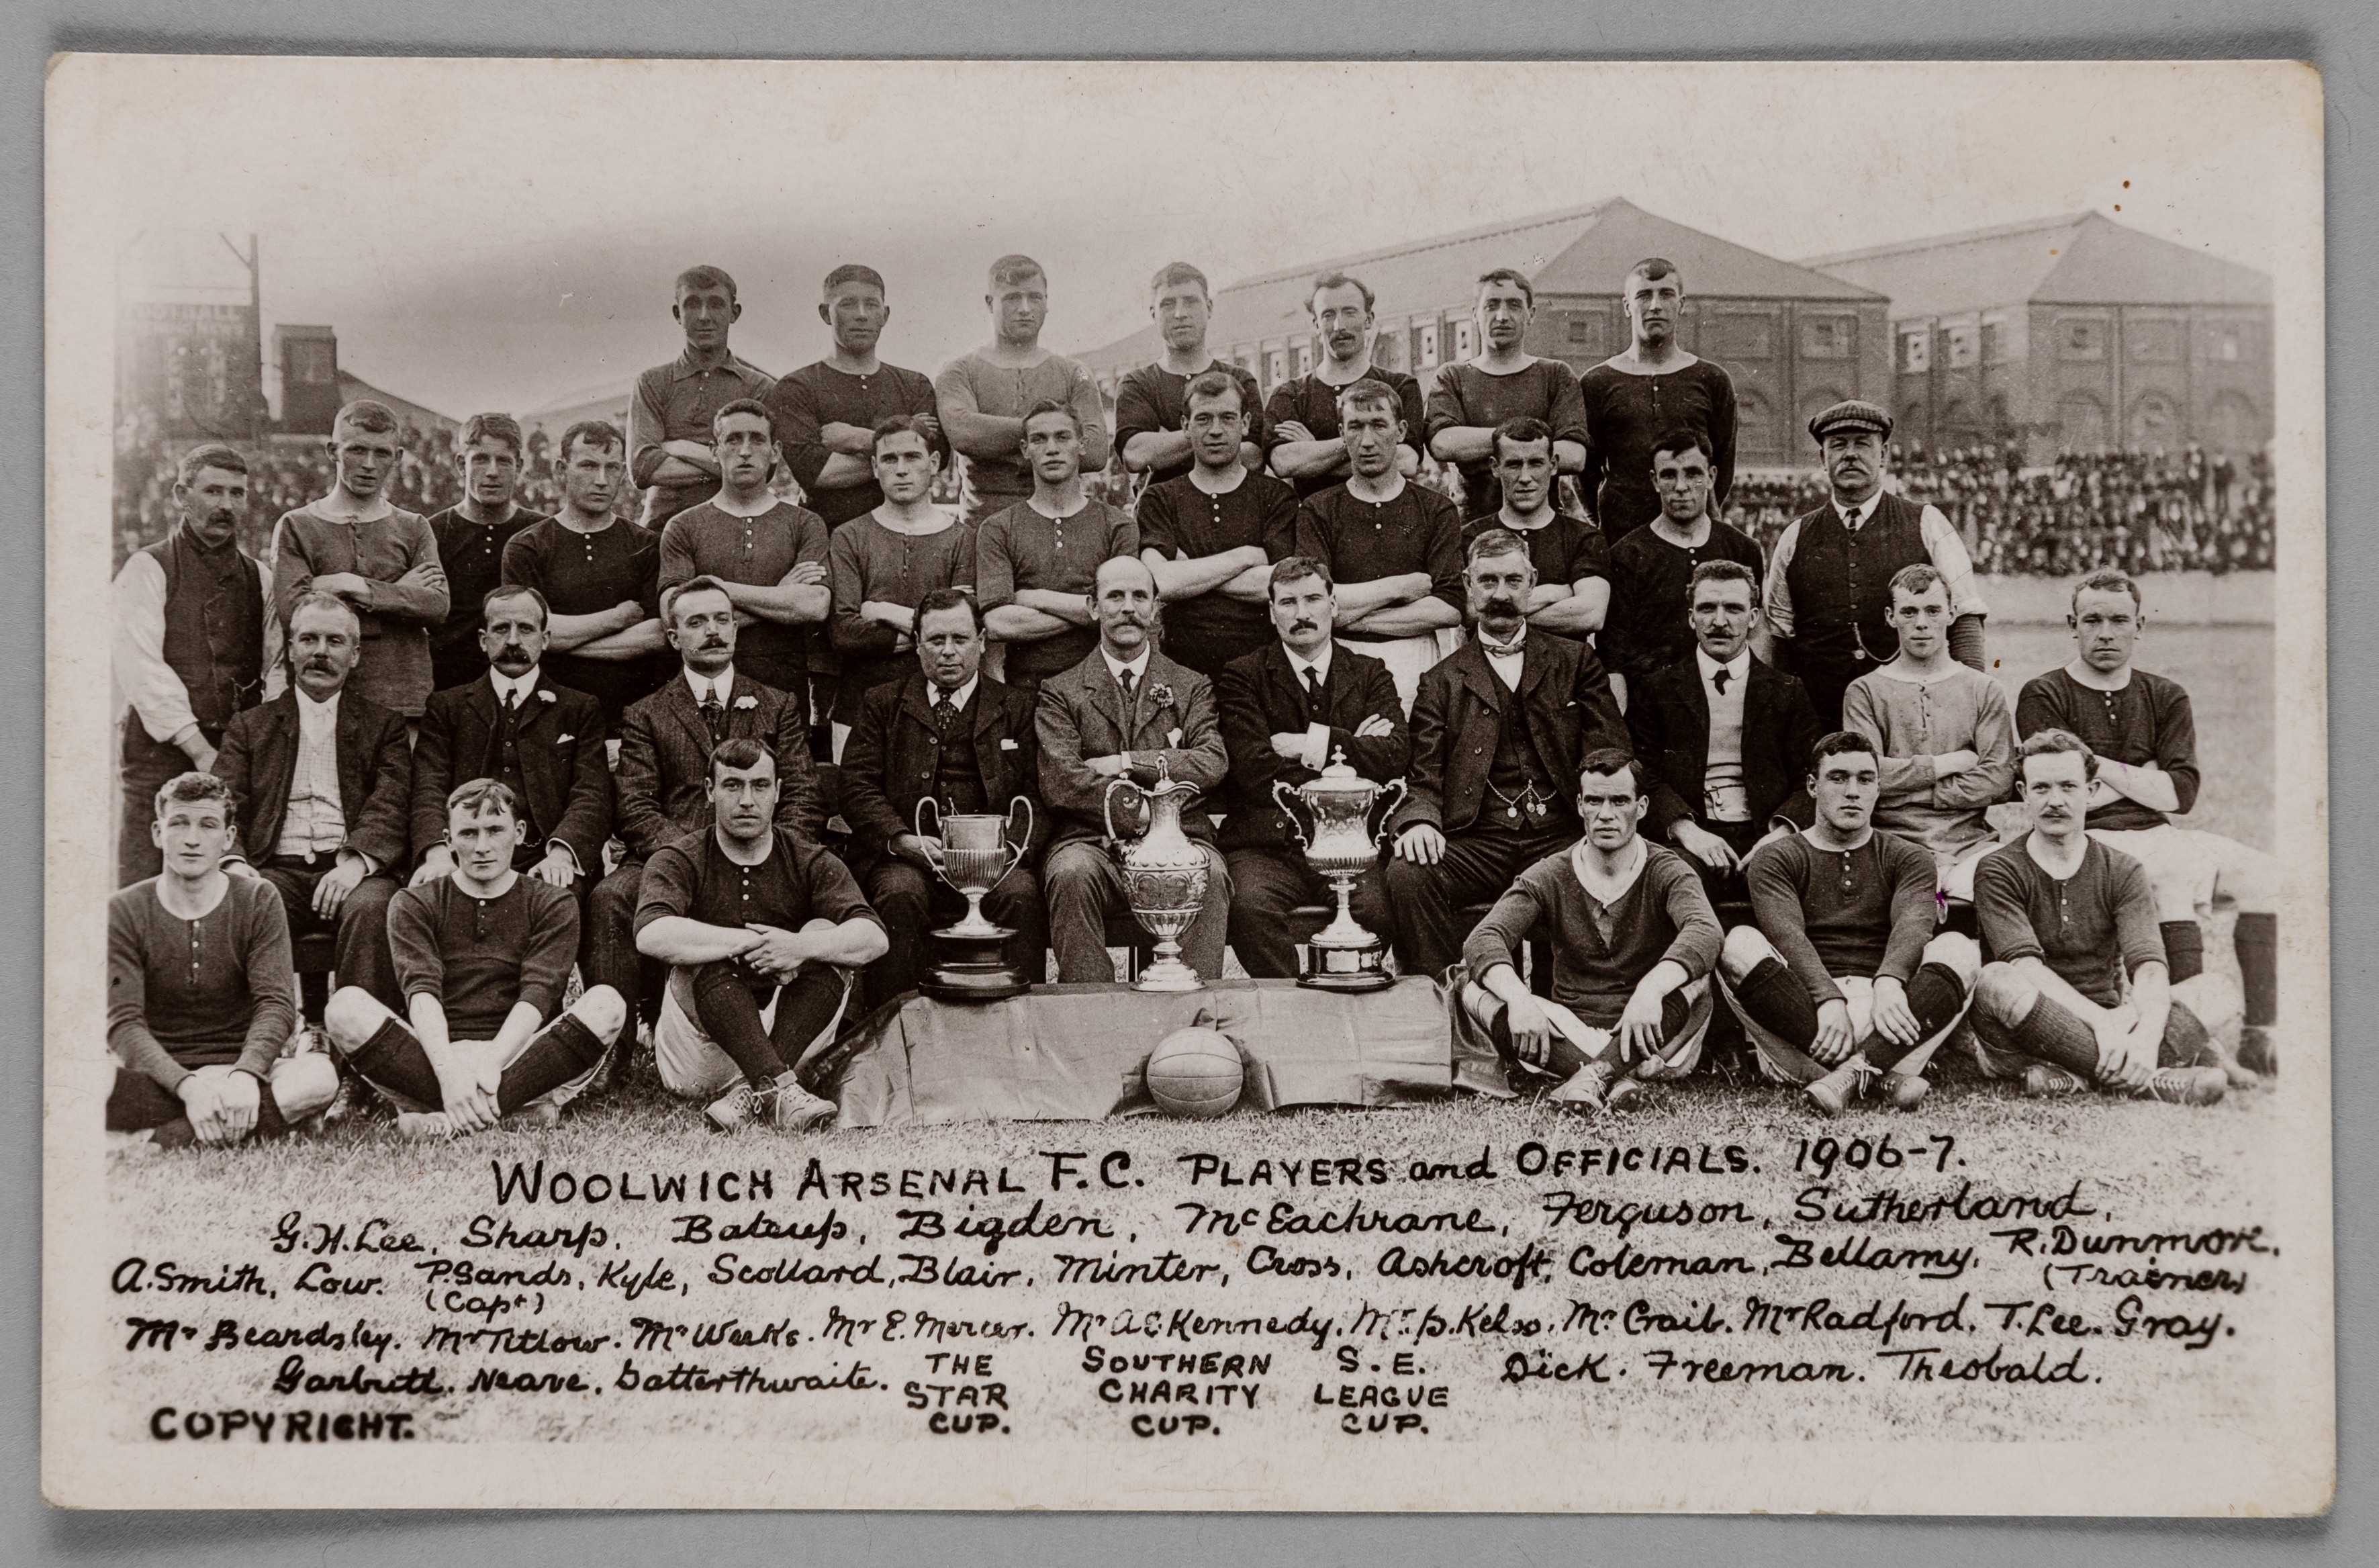 FOOTBALL
WOOLWICH ARSENAL F.C. PLAYERS and OFFICIALS. 1906-7.
G.H.Lee, Sharp. Bateup, Bigden, McEachrane, Ferguson, Sutherland,
A.Smith, Low. P.Sands, Kyle, Scollard, Blair, Minter, Cross, Ashcroft, Coleman, Bellamy, R.Dunmore.
(Capt) (Trainer)
Mr Beardsley. Mr Titlow. Mr Weeks. Mr E. Mercer. Mr A.E Kennedy. Mr. P. Kelso. Mr Crail. Mr Radford. T.Lee. Gray.
Garbutt. Neave. Satterthwaite. THE STAR CUP. SOUTHERN CHARITY CUP. S.E. LEAGUE CUP. Dick. Freeman. Theobald.
COPYRIGHT.